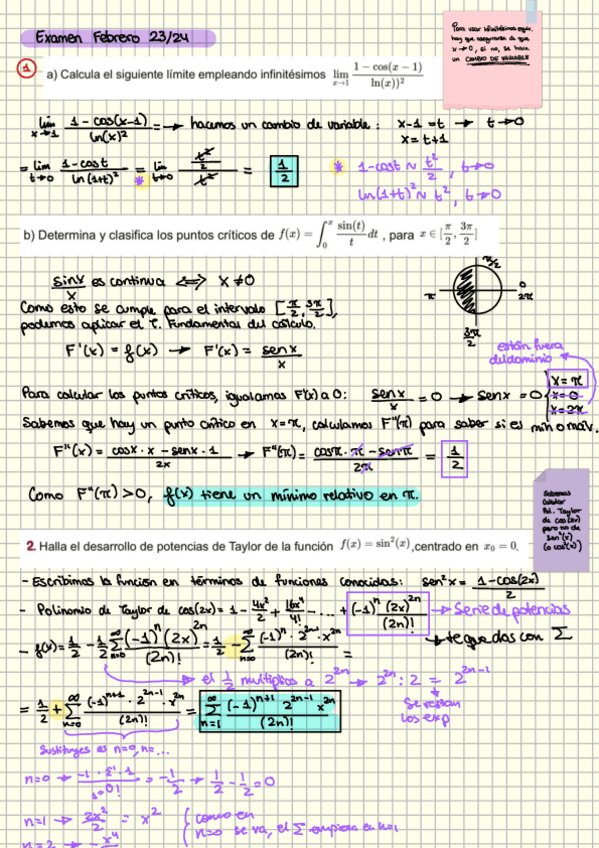 Examen Febrero 23/24
Para usar infinitésimos equiv. hay que asegurarse de que x→0, si no, se hace un CAMBIO DE VARIABLE
1 a) Calcula el siguiente límite empleando infinitésimos lim x→1 (1 − cos(x − 1))/(ln(x))²
lim x→1 (1 - cos(x-1))/ln(x)² = → hacemos un cambio de variable: x-1 = t → t→0
x = t+1
= lim t→0 (1-cos t)/ln(1+t)² = lim t→0 (t²/2)/t² = 1/2
* 1-cos t ~ t²/2, t→0
ln(1+t)² ~ t², t→0
b) Determina y clasifica los puntos críticos de f(x) = ∫₀ˣ sin(t)/t dt , para x ∈ [π/2, 3π/2]
sin x/x es continua ⟺ x ≠ 0
π/2
π
0
2π
3π/2
Como esto se cumple para el intervalo [π/2, 3π/2],
podemos aplicar el T. Fundamental del cálculo.
F'(x) = f(x) → F'(x) = sen x/x
están fuera del dominio
Para calcular los puntos críticos, igualamos F'(x) a 0: sen x/x = 0 → sen x = 0
x = π
x = 0
x = 2π
Sabemos que hay un punto crítico en x = π, calculamos F''(π) para saber si es mín o máx.
F''(x) = (cos x · x - sen x · 1)/2x → F''(π) = (cos π · π - sen π)/2π = 1/2
Como F''(π) > 0, f(x) tiene un mínimo relativo en π.
Sabemos calcular Pol. Taylor de cos(2x) pero no de sen²(x) (o cos²(x))
2. Halla el desarrollo de potencias de Taylor de la función f(x) = sin²(x) ,centrado en x₀ = 0.
- Escribimos la función en términos de funciones conocidas: sen²x = (1-cos(2x))/2
- Polinomio de Taylor de cos(2x) = 1 - 4x²/2 + 16x⁴/4! - ... + (-1)ⁿ (2x)²ⁿ/(2n)! → Serie de potencias
- f(x) = 1/2 - 1/2 Σ n=0 ∞ (-1)ⁿ (2x)²ⁿ/(2n)! = 1/2 - Σ n=0 ∞ (-1)ⁿ · 2²ⁿ⁻¹ · x²ⁿ/(2n)! = → te quedas con Σ
→ el 1/2 multiplica a 2²ⁿ → 2²ⁿ : 2 = 2²ⁿ⁻¹
Se restan los exp
= 1/2 + Σ n=0 ∞ (-1)ⁿ⁺¹ · 2²ⁿ⁻¹ · x²ⁿ/(2n)! = Σ n=1 ∞ (-1)ⁿ⁺¹ 2²ⁿ⁻¹ x²ⁿ/(2n)!
Sustituyes as n=0, n=...
= -1/2 → 1/2 - 1/2 = 0
n=1 → 2x²/2 = x²
como en n=0 se va, el Σ empieza en n=1
n=2 → - x⁴